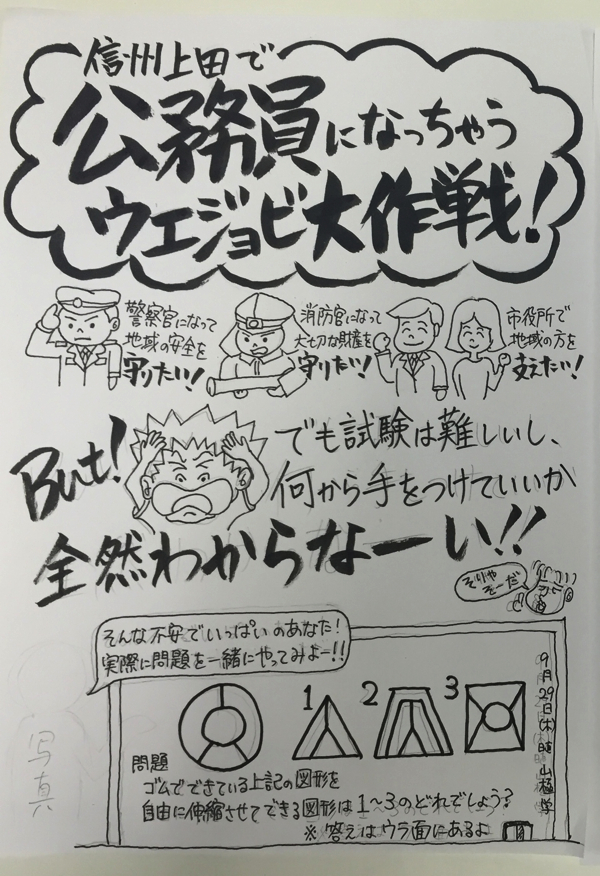 信州上田で
公務員になっちゃう
ウエジョビ大作戦!
警察官になって
地域の安全を
守りたい!
消防官になって
大切な財産を
守りたい!
市役所で
地域の方を
支えたい!
But!
でも試験は難しいし、
何から手をつけていいか
全然わからなーい!!
そりゃ
そーだ
そんな不安でいっぱいのあなた!
実際に問題を一緒にやってみよー!!
1
2
3
9月29日(木)晴 山極 学
問題
ゴムでできている上記の図形を
自由に伸縮させてできる図形は1〜3のどれでしょう?
※答えはウラ面にあるよ
写真